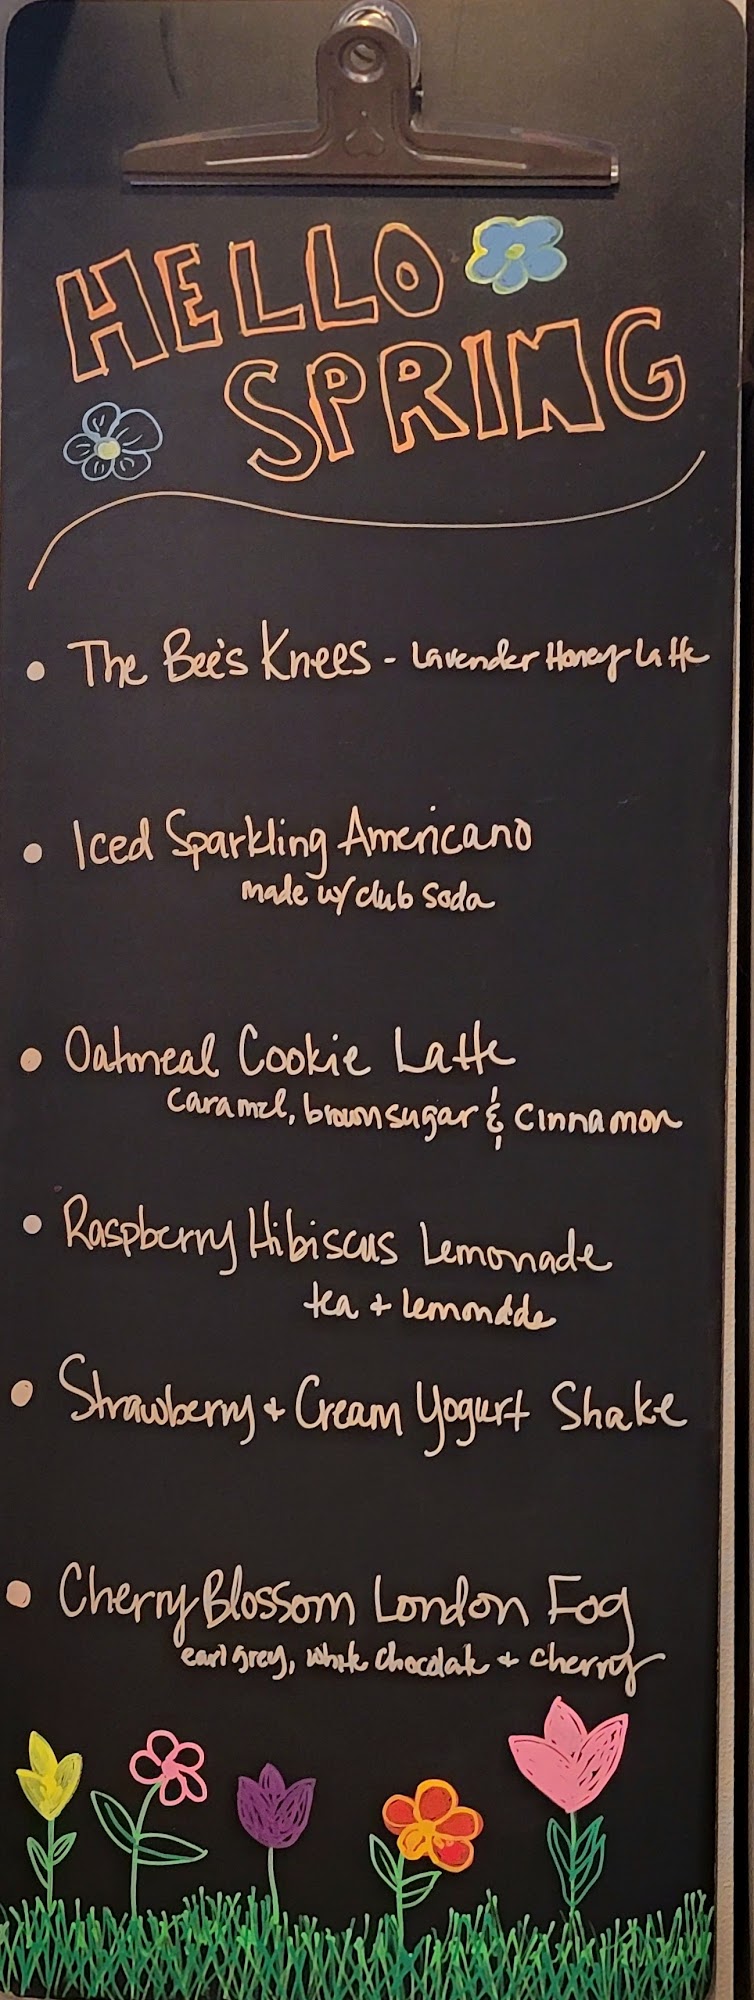 HELLO
SPRING
• The Bee's Knees - Lavender Honey Latte
• Iced Sparkling Americano
made w/ club soda
• Oatmeal Cookie Latte
caramel, brown sugar & cinnamon
• Raspberry Hibiscus Lemonade
tea + lemonade
• Strawberry + Cream Yogurt Shake
• Cherry Blossom London Fog
earl grey, white chocolate + cherry